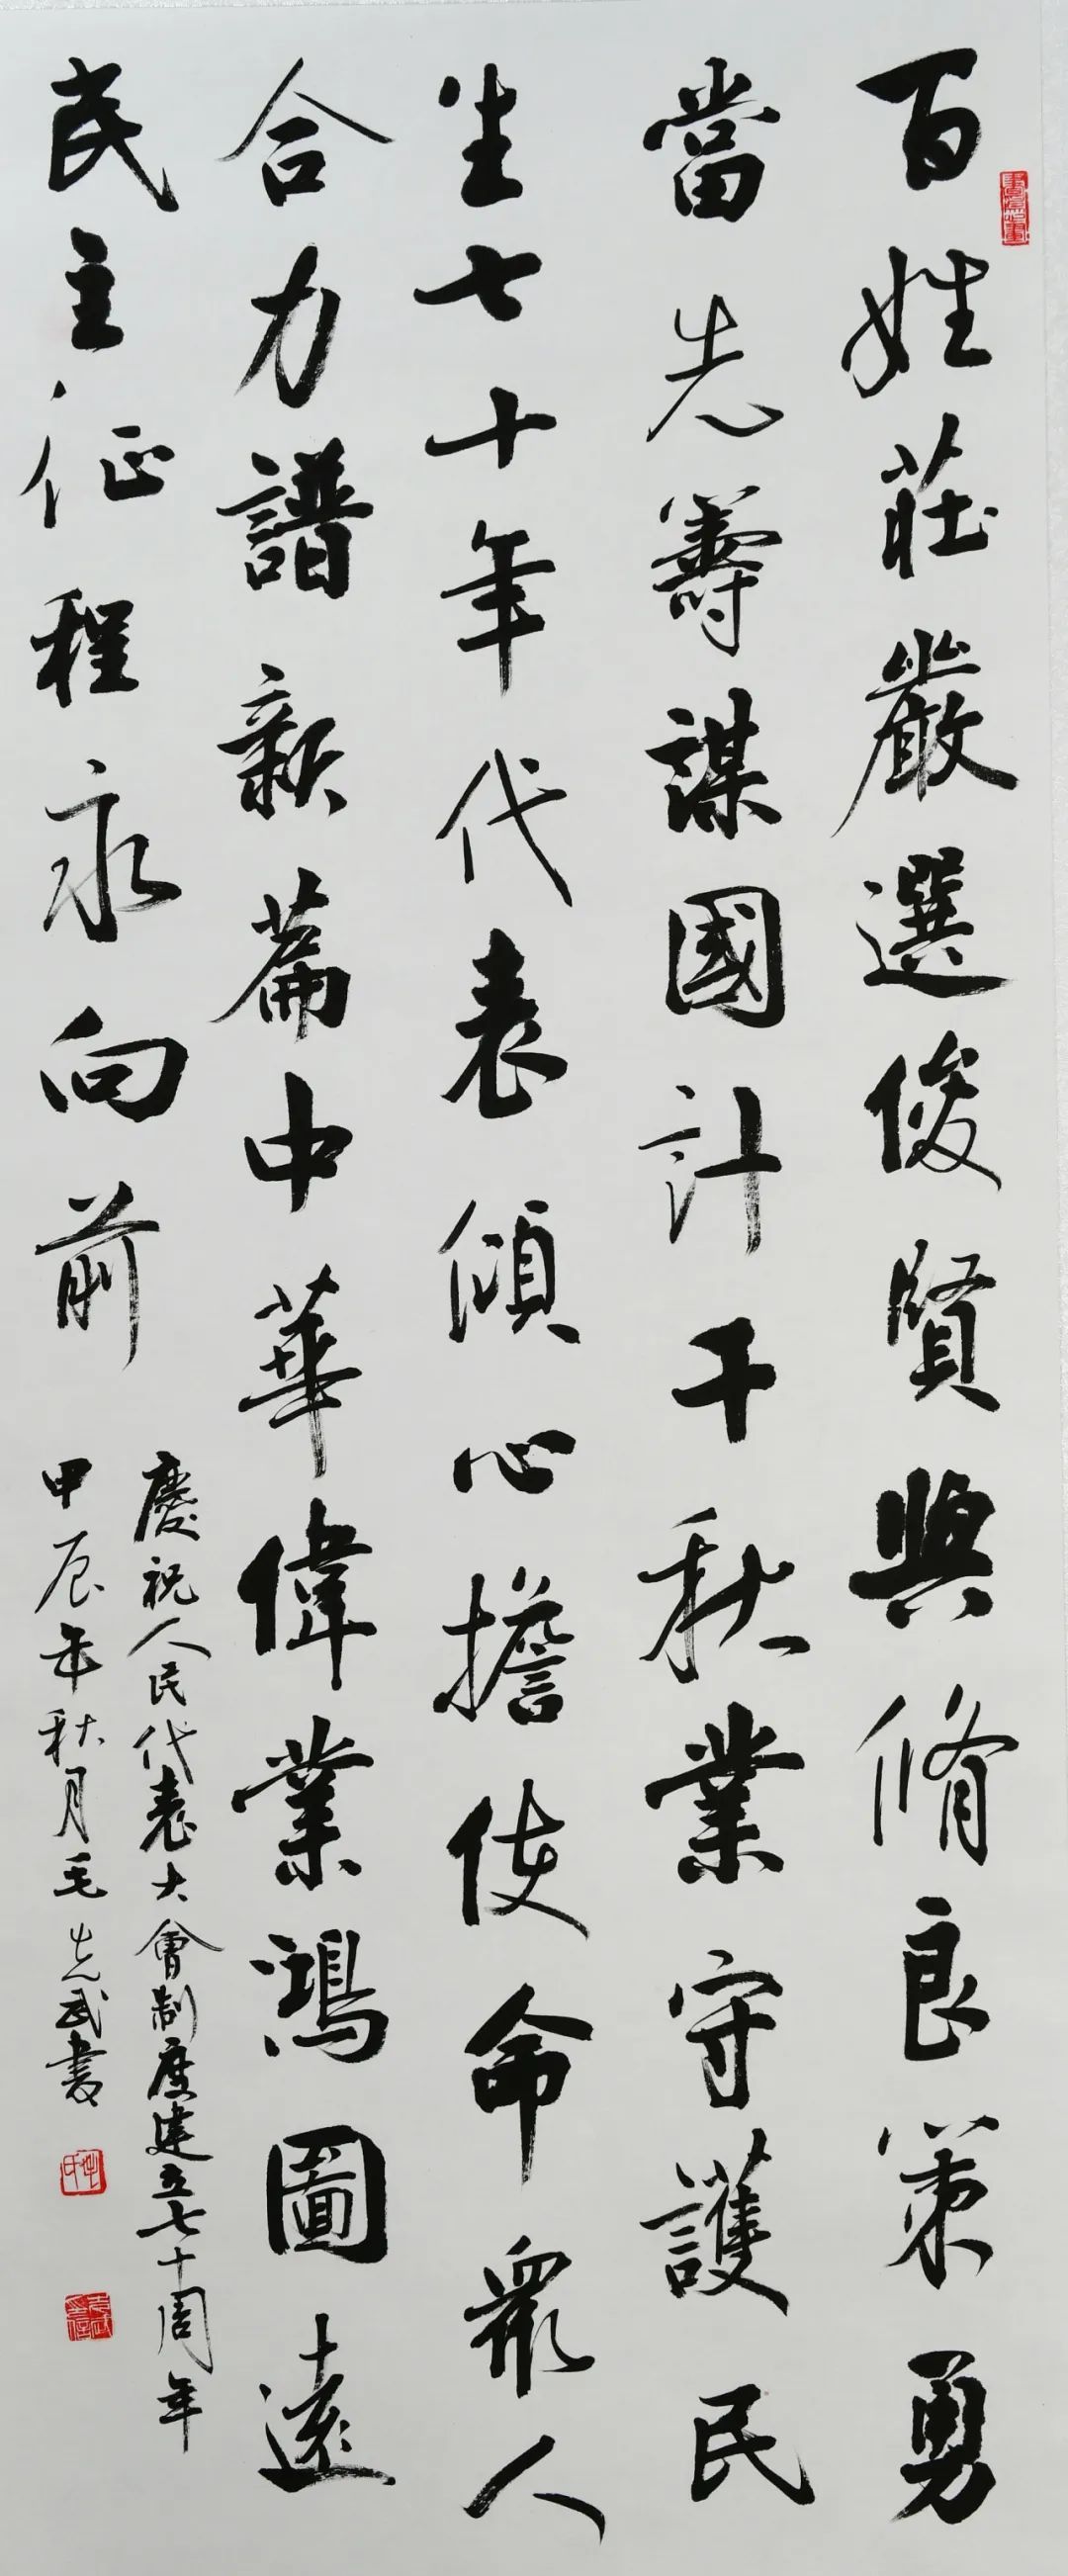 百姓莊嚴選俊賢興脩良策勇
當先籌謀國計千秋業守護民
生七十年代表傾心擔使命眾人
合力譜新篇中華偉業鴻圖遠
民主征程永向前
慶祝人民代表大會制度建立七十周年
甲辰年秋月毛先武書